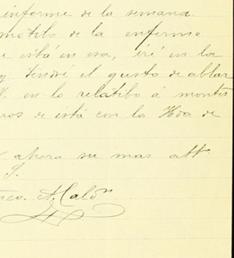 informe de la semana
motibo de la enferme
e está en esa, iré en la
y tendré el gusto de ablar
V. en lo relatibo á montes
nos se está con la Hda de
ahora su mas att
S.